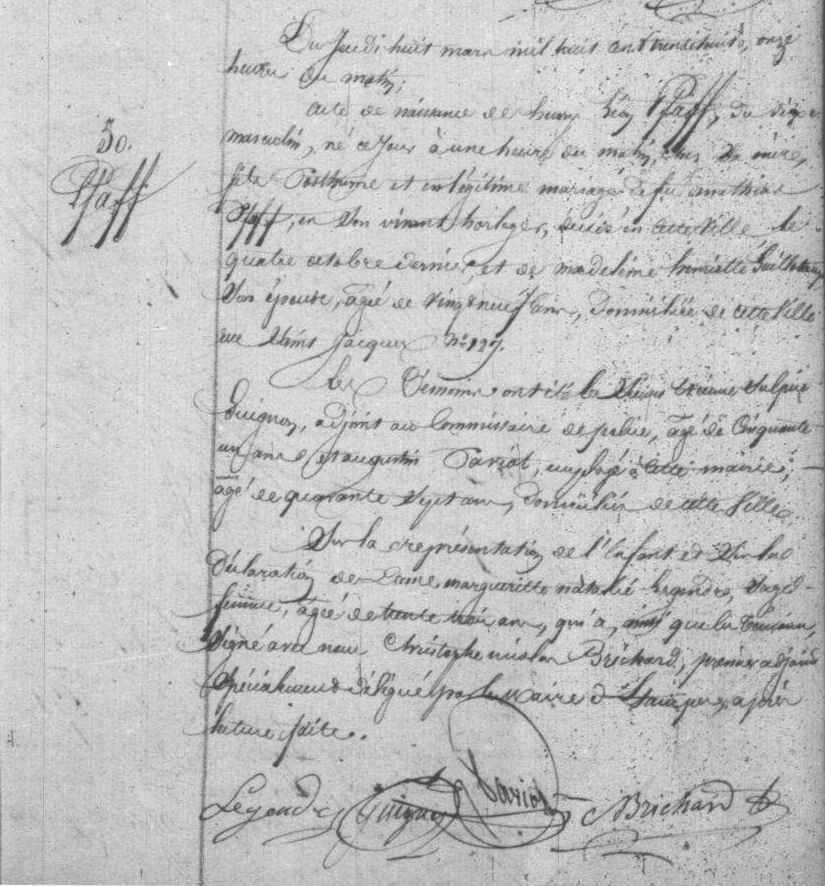 Du Jeudi huit mars mil huit cent trente huit, onze
heures du matin;
acte de naissance de henry Léon Pfaff, du sexe
50.
Pfaff
masculin, né ce jour à une heure du matin, chez sa mère,
fils Posthume et en légitime mariage de feu mathias
Pfaff, en son vivant horloger, décédé en cette ville le
quatre octobre dernier, et de madeleine henriette
son épouse, agée de vingt neuf ans, domiciliée de cette ville
rue Saint Jacques N.º 127.
Les Témoins ont été les Sieurs Etienne Sulpice
Guignon, adjoint au Commissaire de police, agé de Cinquante
un ans et augustin Pariot, employé à cette mairie,
agé de quarante sept ans, domiciliés de cette Ville.
Sur la représentation de l'Enfant et Sur la
déclaration de Dame margueritte natalie Legendre, sage
femme, agée de trente trois ans, qui a, ainsi que les temoins,
Signé avec nous Christophe nicolas Brichard, premier adjoint
Spécialement délégué par le maire d'Etampes, après
lecture faite.
Legendre Guignon Pariot Brichard